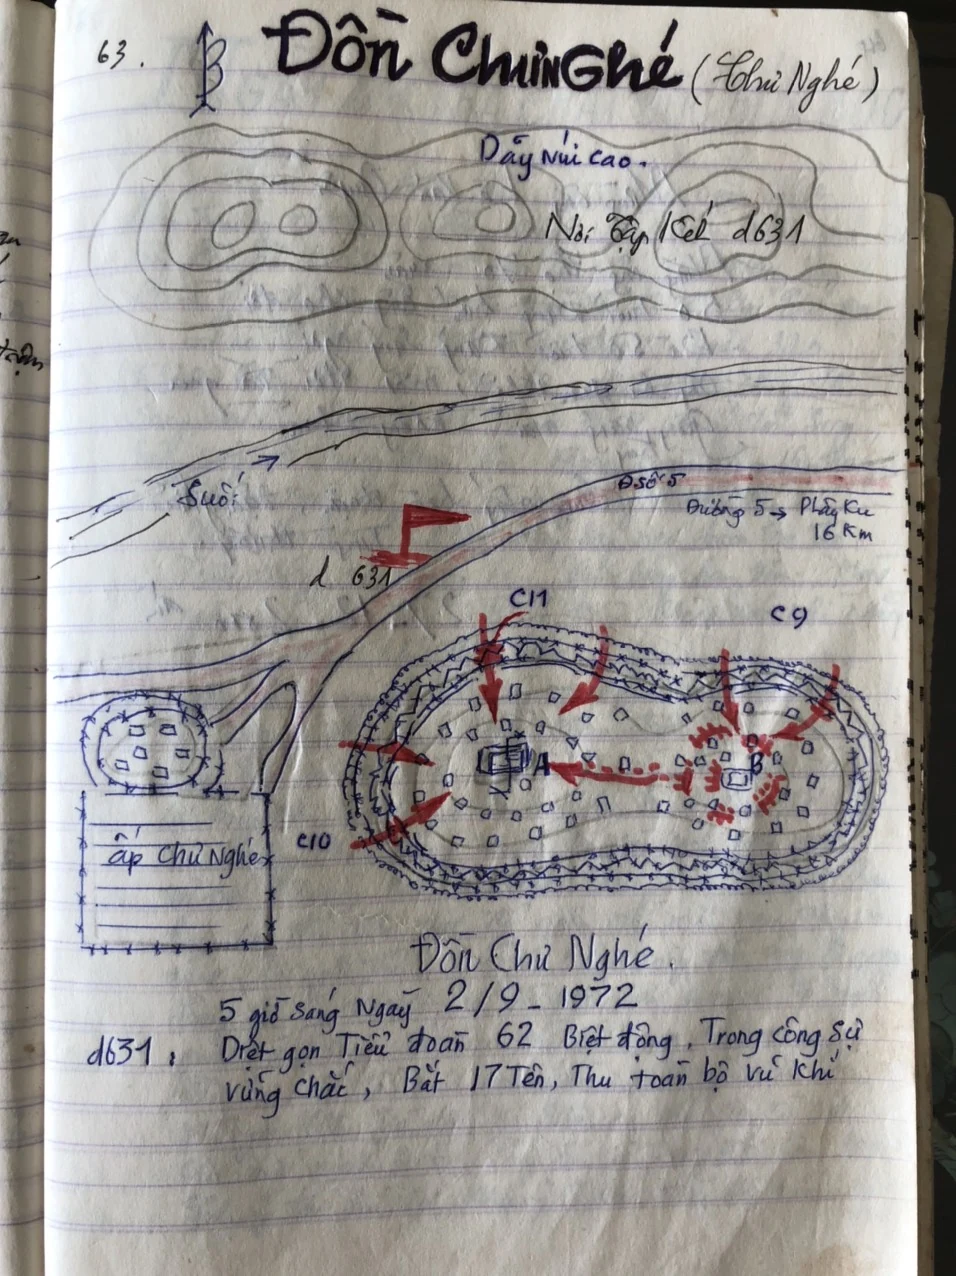 63. B Đồn ChưNGhé (Chư Nghé)
Dãy núi cao.
Nơi Tập Kết d631
Suối
Đ số 5
Đường 5 → Plây Ku
16 Km
d 631
C11
C9
A
B
C10
ấp Chư Nghé
Đồn Chư Nghé.
5 giờ sáng Ngày 2/9-1972
d631: Diệt gọn Tiểu đoàn 62 Biệt động, Trong công sự
vững chắc, Bắt 17 Tên, Thu toàn bộ vũ khí